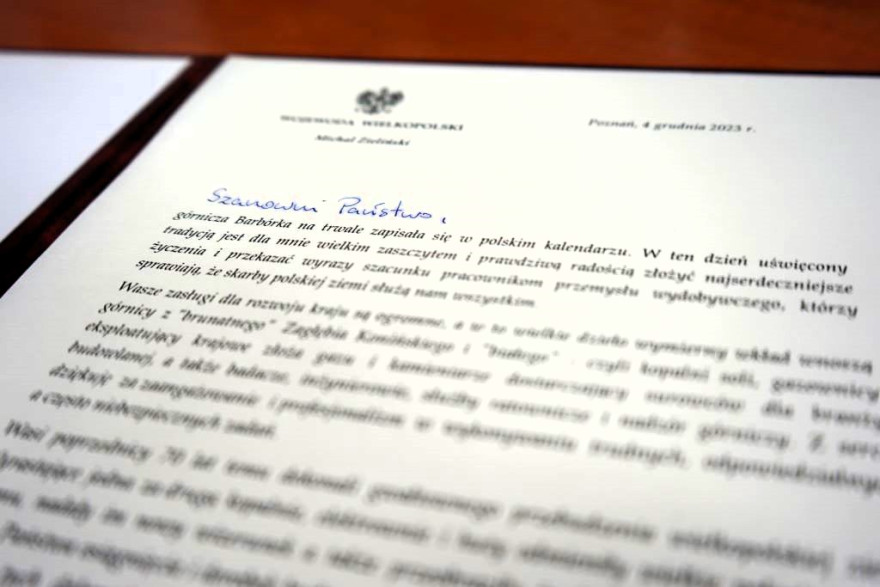 WOJEWODA WIELKOPOLSKI
Michał Zieliński
Poznań, 4 grudnia 2023 r.
Szanowni Państwo,
górnicza Barbórka na trwałe zapisała się w polskim kalendarzu. W ten dzień uświęcony
tradycją jest dla mnie wielkim zaszczytem i prawdziwą radością złożyć najserdeczniejsze
życzenia i przekazać wyrazy szacunku pracownikom przemysłu wydobywczego, którzy
sprawiają, że skarby polskiej ziemi służą nam wszystkim
Wasze zasługi dla rozwoju kraju są ogromne, a w to wielkie dzieło wymierny wkład wnoszą
górnicy z "brunatnego" Zagłębia Konińskiego i "białego" - czyli kopalni soli, gazownicy
eksploatujący krajowe złoża gazu i kamieniarze dostarczający surowców dla branży
budowlanej, a także badacze, inżynierowie, służby ratownicze i nadzór górniczy. Z
dziękuję za zaangażowanie i profesjonalizm w wykonywaniu trudnych, odpowiedzialnych
a często niebezpiecznych zadań.
Wasi poprzednicy 70 lat temu dokonali
jedna za drugą kopalnie, elektrownie i huty